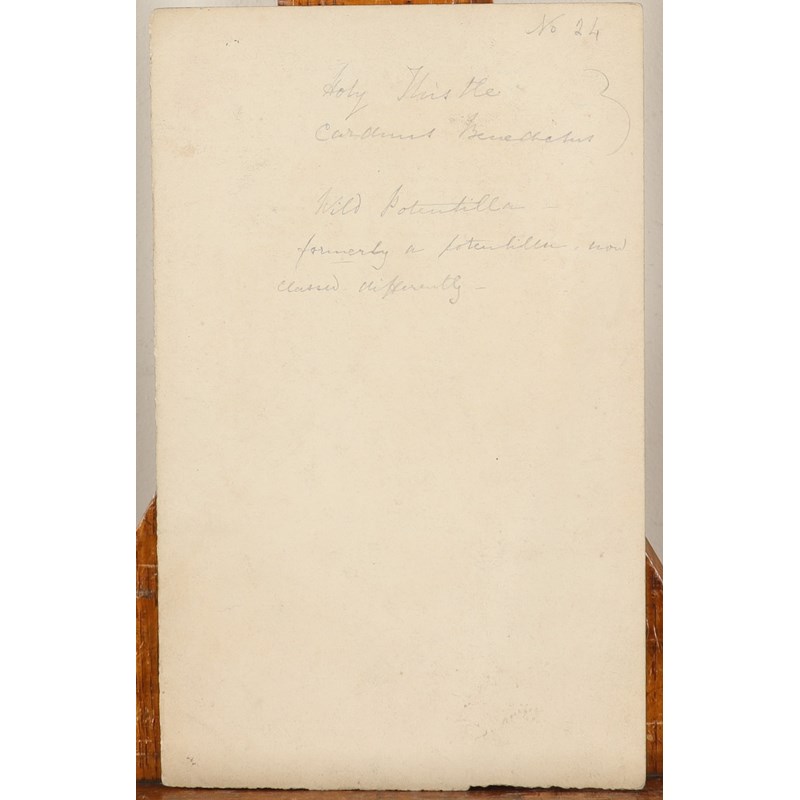 No 24
Holy Thistle
Carduus Benedictus
Wild Potentilla -
formerly a potentilla. now
classed differently -